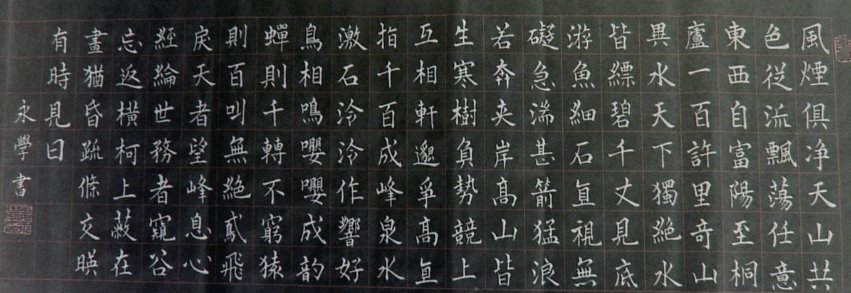 風煙俱净天山共
色從流飄蕩任意
東西自富陽至桐
廬一百許里奇山
異水天下獨絕水
皆縹碧千丈見底
游魚細石直視無
礙急湍甚箭猛浪
若奔夾岸高山皆
生寒樹負勢競上
互相軒邈爭高直
指千百成峰泉水
激石泠泠作響好
鳥相鳴嚶嚶成韵
蟬則千轉不窮猿
則百叫無絕鳶飛
戾天者望峰息心
經綸世務者窺谷
忘返橫柯上蔽在
晝猶昏疏條交暎
有時見日
永學書